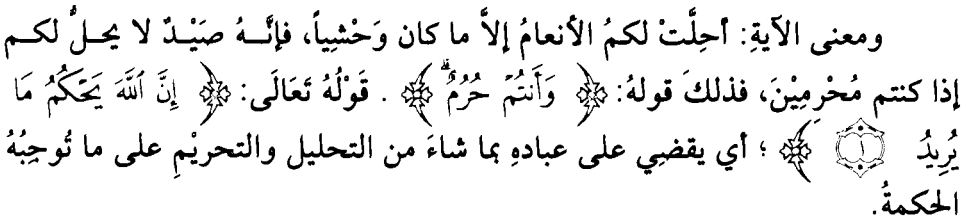 ومعنى الآيةِ: أحِلَّتْ لكمُ الأنعامُ إلاَّ ما كان وَحْشِياً، فإنَّـهُ صَيْـدٌ لا يحلُّ لكـم
إذا كنتم مُحْرِمِيْنَ، فذلكَ قولهُ: ﴿ وَأَنتُمْ حُرُمٌ ۗ ﴾ . قَوْلُهُ تَعَالَى: ﴿ إِنَّ ٱللَّهَ يَحْكُمُ مَا
يُرِيدُ ١ ﴾ ؛ أي يقضِي على عبادهِ بما شاءَ من التحليل والتحريْمِ على ما تُوجِبُهُ
الحكمةُ.